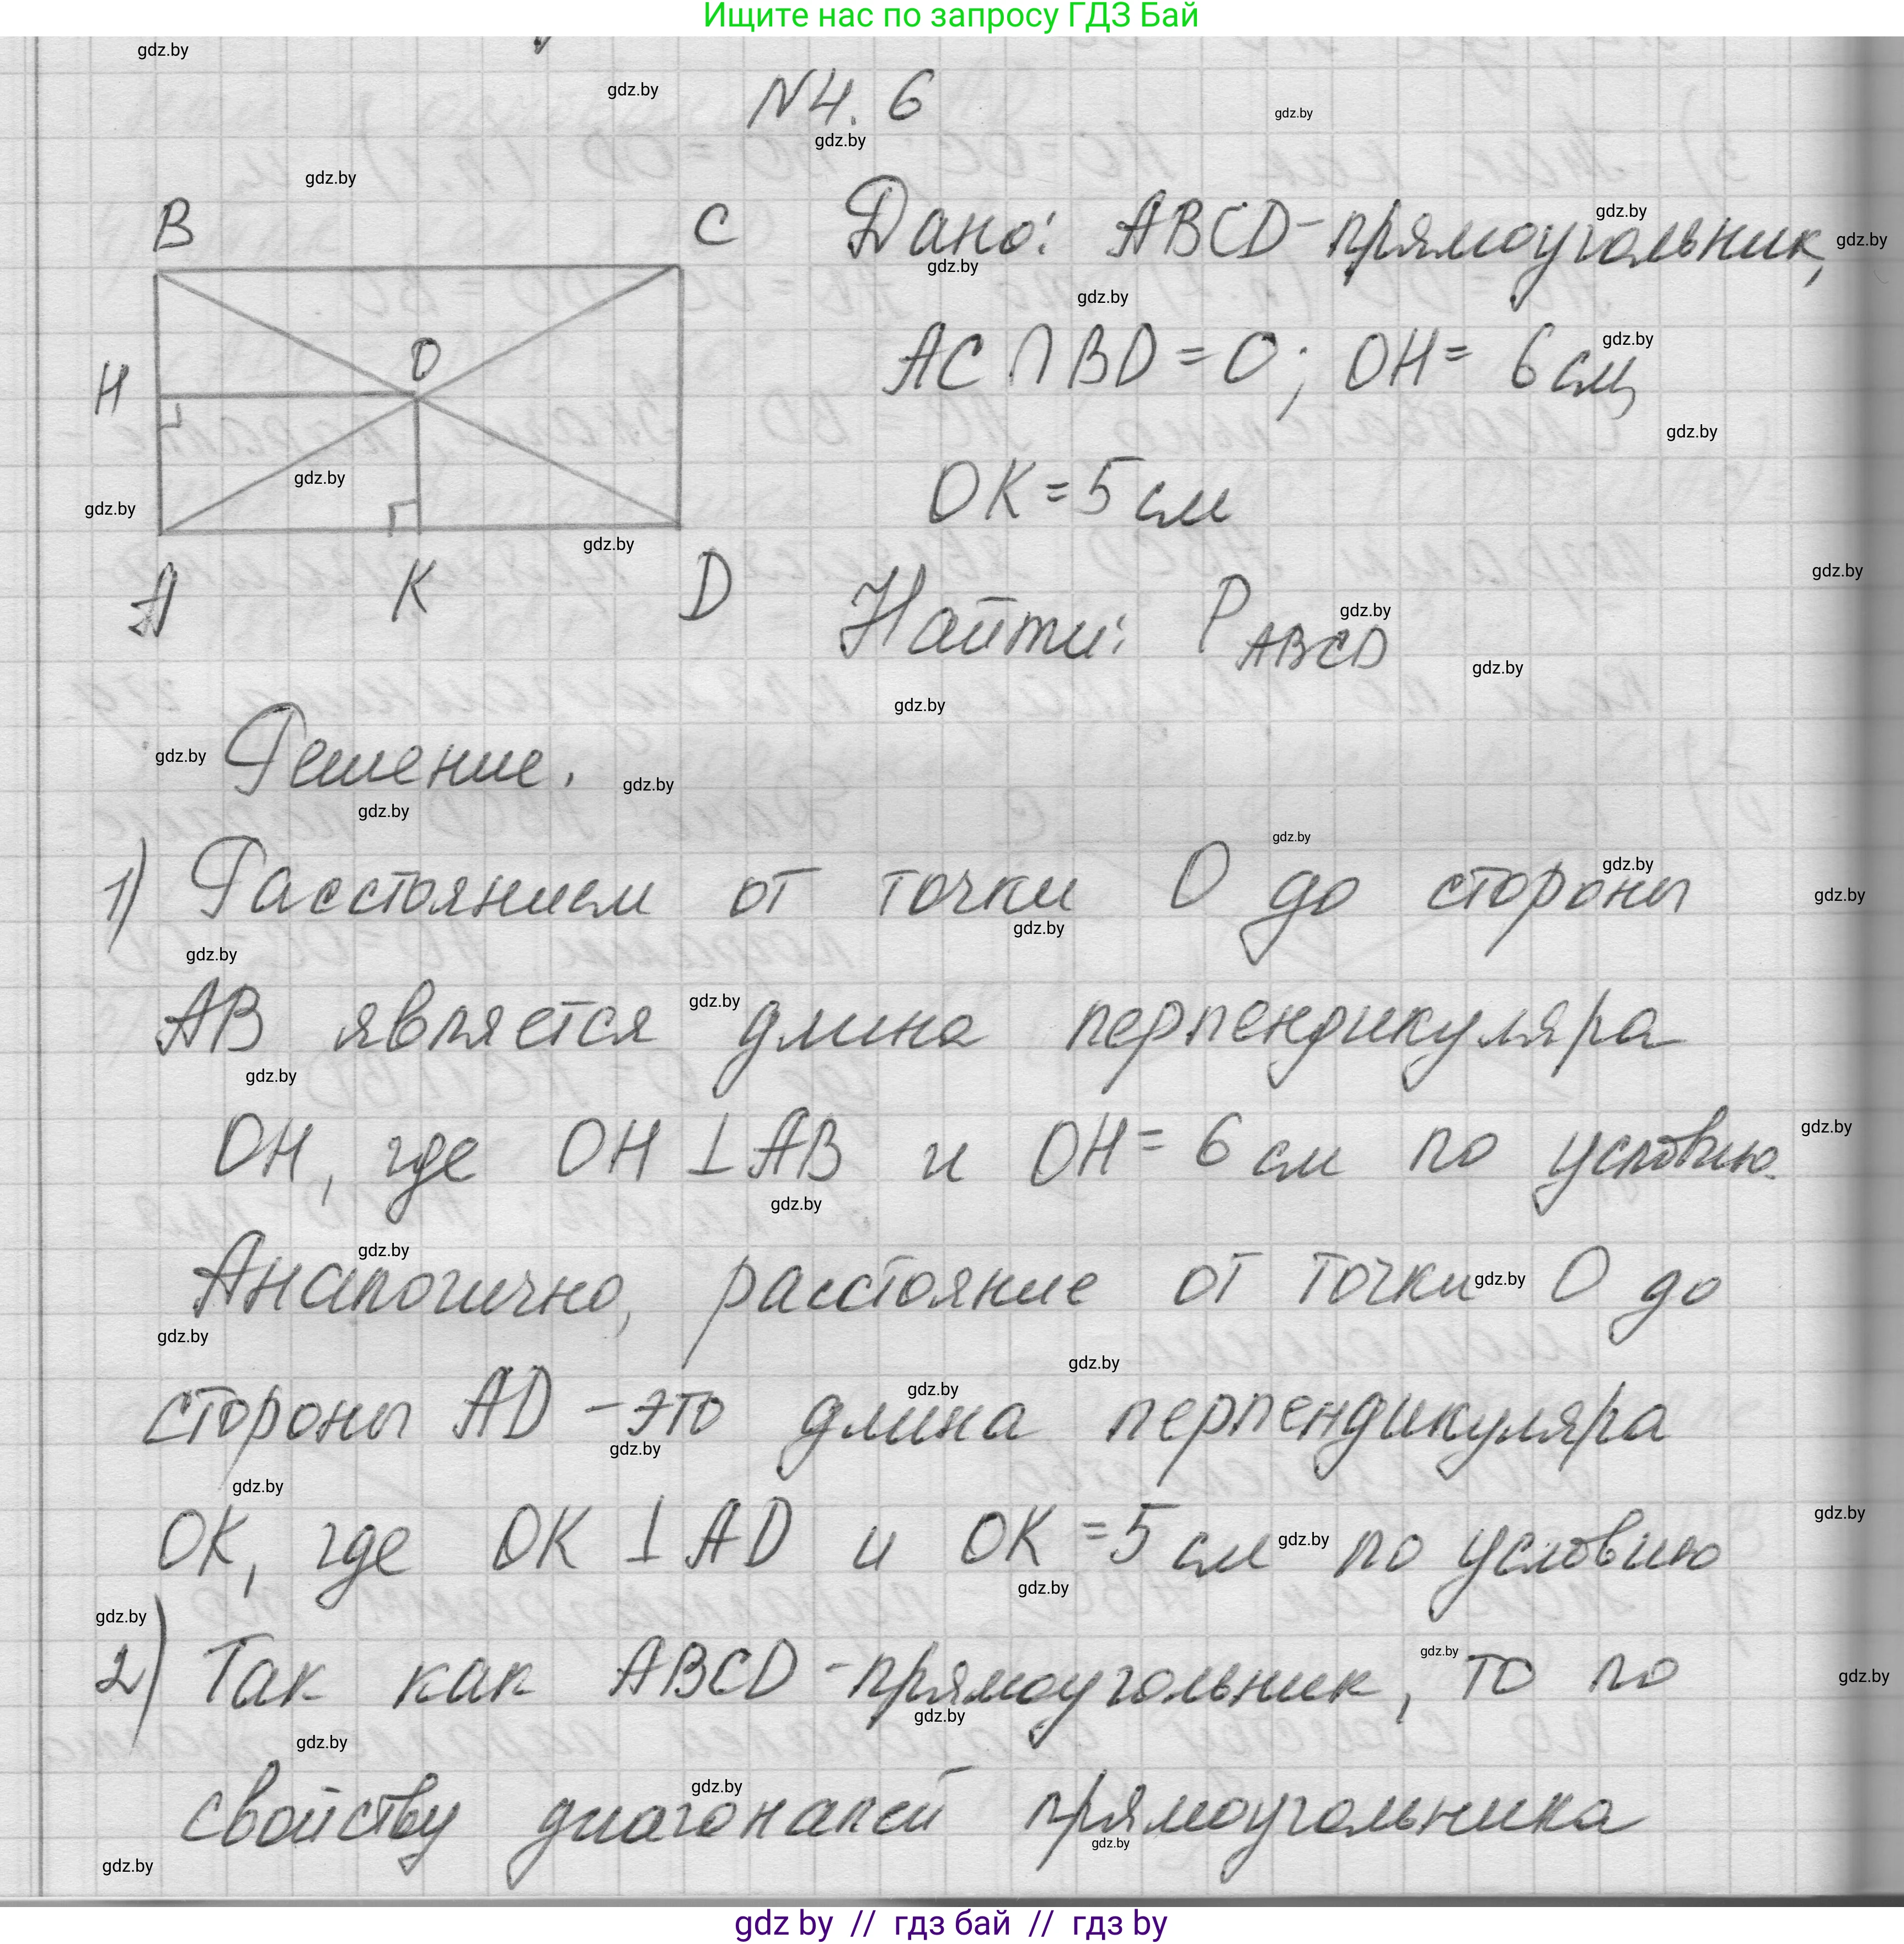 Ищите нас по запросу ГДЗ Бай
N4. 6
B
C
Дано: ABCD-прямоугольник,
O
H
AC ∩ BD = O; OH = 6 см,
OK = 5 см
A
K
D
Найти: P ABCD
Решение.
1) Расстоянием от точки O до стороны
AB является длина перпендикуляра
OH, где OH ⊥ AB и OH = 6 см по условию.
Аналогично, расстояние от точки O до
стороны AD - это длина перпендикуляра
OK, где OK ⊥ AD и OK = 5 см по условию
2) Так как ABCD - прямоугольник, то по
свойству диагоналей прямоугольника
gdz by // гдз бай // гдз by